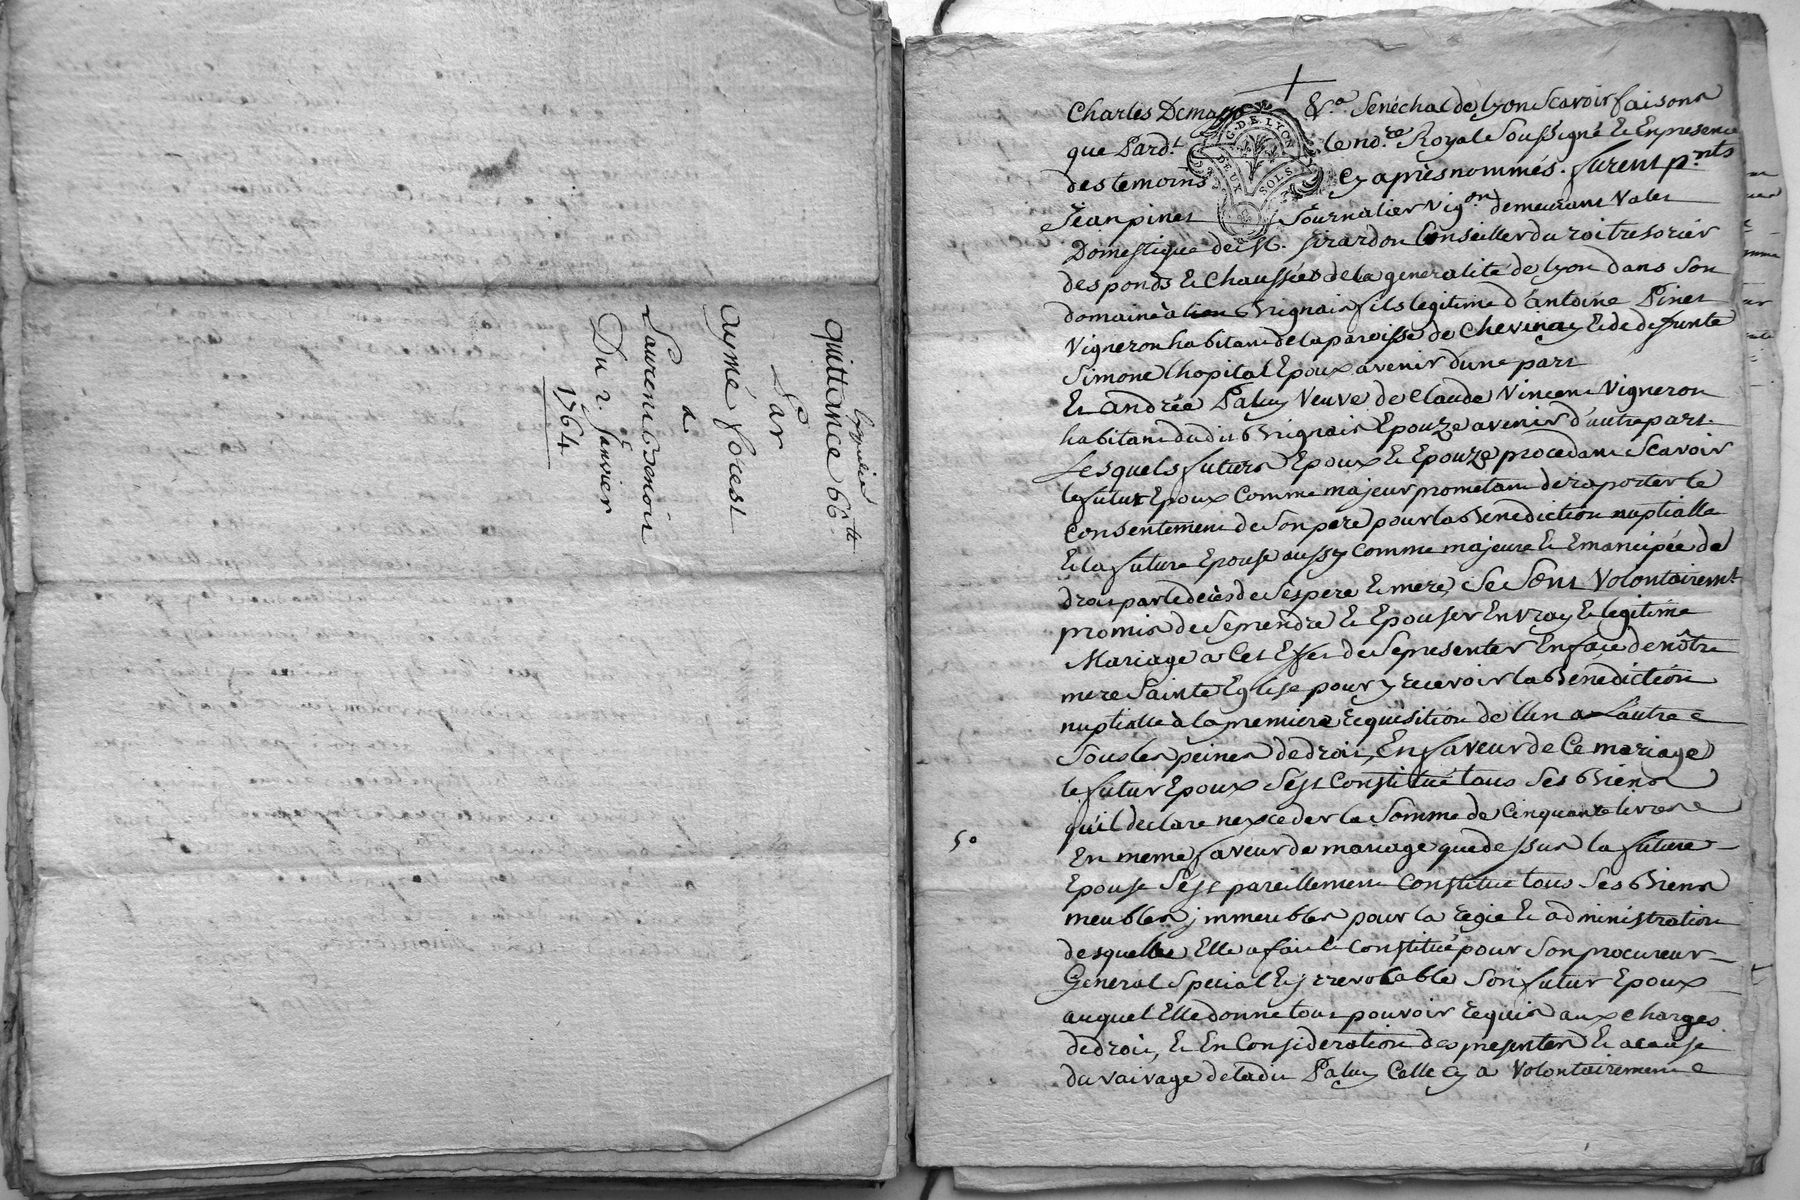 Expédiée
quittance 66tt
Par
aymé forest
a
Laurent benoit
Du 2. Janvier
1764
Charles Demasso &a. Senéchal de lyon Scavoir faisons
que Pardt. le nore. Royal Soussigné Et En presence
des temoins Cy apres nommés. furent pnts
Jean pinet Journalier Vigon demeurant Valet
Domestique de Sr. girardon Conseiller du roi tresorier
des ponds Et Chaussées de la generalité de lyon dans Son
domaine a Brignais fils legitime d'antoine Pinet
Vigneron habitant de la paroisse de Chevinay Et de defunte
Simone lhopital Epoux avenir d'une part
Et andrée Paluy Veuve de Claude Vincent Vigneron
habitant dudit Brignais Epouze avenir d'autre part.
Lesquels futurs Epoux Et Epouze procedant Scavoir
le futur Epoux Comme majeur prometant de raporter le
Consentement de Son pere pour la Benediction nuptialle
Et la future Epouse aussy Comme majeure Et Emancipée de
droit par le decès de Ses pere Et mere, Se Sont Volontairemt
promis de Se prendre Et Epouser En vray Et legitime
Mariage a Cet Effet de Se presenter En face de nôtre
mere Sainte Eglise pour y recevoir la Bénédiction
nuptialle à la premiere requisition de l'un a L'autre
Sous les peines de droit, En faveur de Ce mariage
le futur Epoux S'est Constitué tous Ses Biens
qu'il declare n'exceder la Somme de Cinquante livres
50
En meme faveur de mariage que dessus la future
Epouse S'est pareillement Constitué tous Ses Biens
meubles immeubles pour la regie Et administration
desquelles Elle a fait Et Constitué pour Son procureur
General Special Et irrevocable Son futur Epoux
auquel Elle donne tout pouvoir requis aux charges
de droit, Et En Consideration des presentes Et a cause
du vaivage de ladit Paluy Celle cy a Volontairement
G. DE LYON
DEUX SOLS